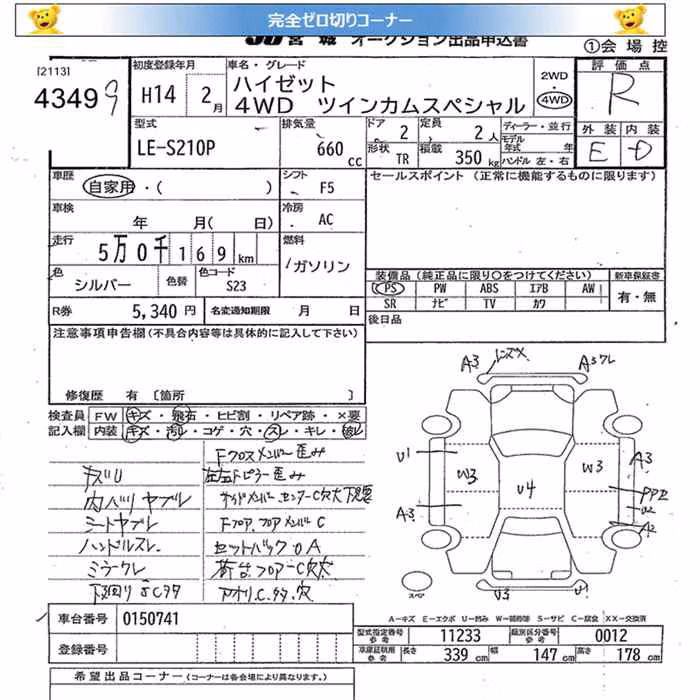 完全ゼロ切りコーナー
JU宮城 オークション出品申込書
①会場控
[2113]
43499
初度登録年月
H14 2月
車名・グレード
ハイゼット
4WD ツインカムスペシャル
2WD
4WD
評価点
R
外装 内装
E D
型式
LE-S210P
排気量
660 cc
ドア 2
定員 2人
形状 TR
積載 350 kg
ディーラー・並行
モデル年式 年
ハンドル 左・右
車歴
自家用・( )
シフト
F5
セールスポイント (正常に機能するものに限ります)
車検
年 月( 日)
冷房
AC
走行
5万0千169km
燃料
ガソリン
色
シルバー
色替
色コード
S23
装備品(純正品に限り○をつけてください)
新車保証書
PS PW ABS エアB AW
SR ナビ TV カワ
有・無
R券 5,340円
名変通知期限 月 日
後日品
注意事項申告欄(不具合内容等は具体的に記入して下さい)
修復歴 有 [箇所 ]
検査員記入欄
FW キズ・飛石・ヒビ割・リペア跡・×要
内装 キズ・汚レ・コゲ・穴・スレ・キレ・破レ
Fクロスメンバー歪み
キズU
左右Fピラー歪み
内バリヤブレ
シートヤブレ
Fフロア,フロアメンバーC
ハンドルスレ
セットバック
ミラークレ
荷台フロアーC穴大
下回り
アオリC.タタ.穴
A3
レンズX
A3
U1
W3
W3
A3
U4
A3
U2
A2
スペア
U3
U1
A=キズ E=エクボ U=凹み W=補修跡 S=サビ C=腐食 XX=交換済
車台番号 0150741
登録番号
型式指定番号参考 11233
類別区分番号参考 0012
車庫証明用参考 長さ 339cm 幅 147cm 高さ 178cm
希望出品コーナー (コーナーは各会場により異なります。)